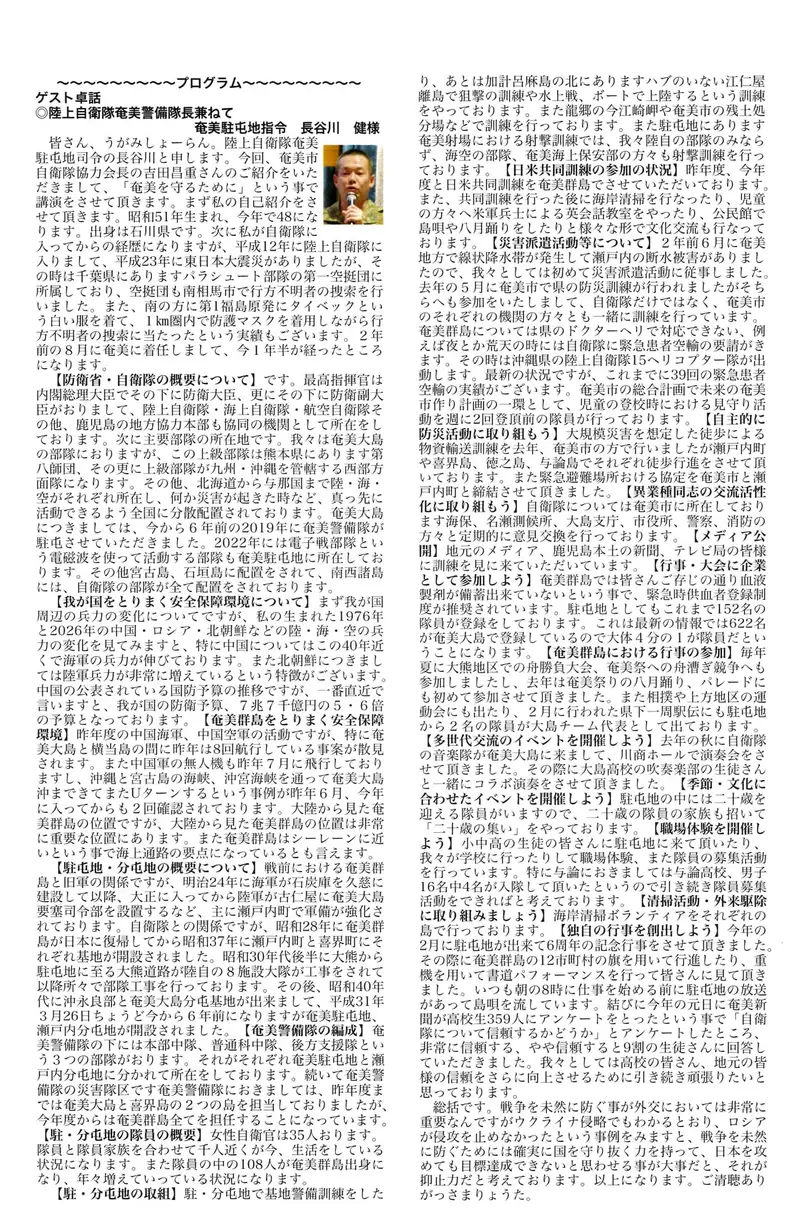 ～～～～～～～～～プログラム～～～～～～～～～
ゲスト卓話
◎陸上自衛隊奄美警備隊長兼ねて
奄美駐屯地指令　長谷川　健様
　皆さん、うがみしょーらん。陸上自衛隊奄美
駐屯地司令の長谷川と申します。今回、奄美市
自衛隊協力会長の吉田昌重さんのご紹介をいた
だきまして、「奄美を守るために」という事で
講演をさせて頂きます。まず私の自己紹介をさ
せて頂きます。昭和51年生まれ、今年で48にな
ります。出身は石川県です。次に私が自衛隊に
入ってからの経歴になりますが、平成12年に陸上自衛隊に
入りまして、平成23年に東日本大震災がありましたが、そ
の時は千葉県にありますパラシュート部隊の第一空挺団に
所属しており、空挺団も南相馬市で行方不明者の捜索を行
いました。また、南の方に第1福島原発にタイベックとい
う白い服を着て、１㎞圏内で防護マスクを着用しながら行
方不明者の捜索に当たったという実績もございます。２年
前の８月に奄美に着任しまして、今１年半が経ったところ
になります。
　【防衛省・自衛隊の概要について】です。最高指揮官は
内閣総理大臣でその下に防衛大臣、更にその下に防衛副大
臣がおりまして、陸上自衛隊・海上自衛隊・航空自衛隊そ
の他、鹿児島の地方協力本部も協同の機関として所在をし
ております。次に主要部隊の所在地です。我々は奄美大島
の部隊におりますが、この上級部隊は熊本県にあります第
八師団、その更に上級部隊が九州・沖縄を管轄する西部方
面隊になります。その他、北海道から与那国まで陸・海・
空がそれぞれ所在し、何か災害が起きた時など、真っ先に
活動できるよう全国に分散配置されております。奄美大島
につきましては、今から６年前の2019年に奄美警備隊が
駐屯させていただきました。2022年には電子戦部隊とい
う電磁波を使って活動する部隊も奄美駐屯地に所在してお
ります。その他宮古島、石垣島に配置をされて、南西諸島
には、自衛隊の部隊が全て配置をされております。
　【我が国をとりまく安全保障環境について】まず我が国
周辺の兵力の変化についてですが、私の生まれた1976年
と2026年の中国・ロシア・北朝鮮などの陸・海・空の兵
力の変化を見てみますと、特に中国についてはこの40年近
くで海軍の兵力が伸びております。また北朝鮮につきまし
ては陸軍兵力が非常に増えているという特徴がございます。
中国の公表されている国防予算の推移ですが、一番直近で
言いますと、我が国の防衛予算、７兆７千億円の５・６倍
の予算となっております。【奄美群島をとりまく安全保障
環境】昨年度の中国海軍、中国空軍の活動ですが、特に奄
美大島と横当島の間に昨年は8回航行している事案が散見
されます。また中国軍の無人機も昨年７月に飛行しており
ますし、沖縄と宮古島の海峡、沖宮海峡を通って奄美大島
沖まできてまたUターンするという事例が昨年６月、今年
に入ってからも２回確認されております。大陸から見た奄
美群島の位置ですが、大陸から見た奄美群島の位置は非常
に重要な位置にあります。また奄美群島はシーレーンに近
いという事で海上通路の要点になっているとも言えます。
　【駐屯地・分屯地の概要について】戦前における奄美群
島と旧軍の関係ですが、明治24年に海軍が石炭庫を久慈に
建設して以降、大正に入ってから陸軍が古仁屋に奄美大島
要塞司令部を設置するなど、主に瀬戸内町で軍備が強化さ
れております。自衛隊との関係ですが、昭和28年に奄美群
島が日本に復帰してから昭和37年に瀬戸内町と喜界町にそ
れぞれ基地が開設されました。昭和30年代後半に大熊から
駐屯地に至る大熊道路が陸自の８施設大隊が工事をされて
以降所々で部隊工事を行っております。その後、昭和40年
代に沖永良部と奄美大島分屯基地が出来まして、平成31年
３月26日ちょうど今から６年前になりますが奄美駐屯地、
瀬戸内分屯地が開設されました。【奄美警備隊の編成】奄
美警備隊の下には本部中隊、普通科中隊、後方支援隊とい
う３つの部隊がおります。それがそれぞれ奄美駐屯地と瀬
戸内分屯地に分かれて所在をしております。続いて奄美警
備隊の災害隊区です奄美警備隊におきましては、昨年度ま
では奄美大島と喜界島の２つの島を担当しておりましたが、
今年度からは奄美群島全てを担任することになっています。
【駐・分屯地の隊員の概要】女性自衛官は35人おります。
隊員と隊員家族を合わせて千人近くが今、生活をしている
状況になります。また隊員の中の108人が奄美群島出身に
なり、年々増えていっている状況になります。
　【駐・分屯地の取組】駐・分屯地で基地警備訓練をした
り、あとは加計呂麻島の北にありますハブのいない江仁屋
離島で狙撃の訓練や水上戦、ボートで上陸するという訓練
をやっております。また龍郷の今江崎岬や奄美市の残土処
分場などで訓練を行っております。また駐屯地にあります
奄美射場における射撃訓練では、我々陸自の部隊のみなら
ず、海空の部隊、奄美海上保安部の方々も射撃訓練を行っ
ております。【日米共同訓練の参加の状況】昨年度、今年
度と日米共同訓練を奄美群島でさせていただいております。
また、共同訓練を行った後に海岸清掃を行なったり、児童
の方々へ米軍兵士による英会話教室をやったり、公民館で
島唄や八月踊りをしたりと様々な形で文化交流も行なって
おります。【災害派遣活動等について】２年前６月に奄美
地方で線状降水帯が発生して瀬戸内の断水被害がありまし
たので、我々としては初めて災害派遣活動に従事しました。
去年の５月に奄美市で県の防災訓練が行われましたがそち
らへも参加をいたしまして、自衛隊だけではなく、奄美市
のそれぞれの機関の方々とも一緒に訓練を行っています。
奄美群島については県のドクターヘリで対応できない、例
えば夜とか荒天の時には自衛隊に緊急患者空輸の要請がき
ます。その時は沖縄県の陸上自衛隊15ヘリコプター隊が出
動します。最新の状況ですが、これまでに39回の緊急患者
空輸の実績がございます。奄美市の総合計画で未来の奄美
市作り計画の一環として、児童の登校時における見守り活
動を週に2回登頂前の隊員が行っております。【自主的に
防災活動に取り組もう】大規模災害を想定した徒歩による
物資輸送訓練を去年、奄美市の方で行いましたが瀬戸内町
や喜界島、徳之島、与論島でそれぞれ徒歩行進をさせて頂
いております。また緊急避難場所おける協定を奄美市と瀬
戸内町と締結させて頂きました。【異業種同志の交流活性
化に取り組もう】自衛隊については奄美市に所在しており
ます海保、名瀬測候所、大島支庁、市役所、警察、消防の
方々と定期的に意見交換を行っております。【メディア公
開】地元のメディア、鹿児島本土の新聞、テレビ局の皆様
に訓練を見に来ていただいています。【行事・大会に企業
として参加しよう】奄美群島では皆さんご存じの通り血液
製剤が備蓄出来ていないという事で、緊急時供血者登録制
度が推奨されています。駐屯地としてもこれまで152名の
隊員が登録をしております。これは最新の情報では622名
が奄美大島で登録しているので大体４分の１が隊員だとい
うことになります。【奄美群島における行事の参加】毎年
夏に大熊地区での舟勝負大会、奄美祭への舟漕ぎ競争へも
参加しましたし、去年は奄美祭りの八月踊り、パレードに
も初めて参加させて頂きました。また相撲や上方地区の運
動会にも出たり、２月に行われた県下一周駅伝にも駐屯地
から２名の隊員が大島チーム代表として出ております。
【多世代交流のイベントを開催しよう】去年の秋に自衛隊
の音楽隊が奄美大島に来まして、川商ホールで演奏会をさ
せて頂きました。その際に大島高校の吹奏楽部の生徒さん
と一緒にコラボ演奏をさせて頂きました。【季節・文化に
合わせたイベントを開催しよう】駐屯地の中には二十歳を
迎える隊員がいますので、二十歳の隊員の家族も招いて
「二十歳の集い」をやっております。【職場体験を開催し
よう】小中高の生徒の皆さんに駐屯地に来て頂いたり、
我々が学校に行ったりして職場体験、また隊員の募集活動
を行っています。特に与論におきましては与論高校、男子
16名中4名が入隊して頂いたというので引き続き隊員募集
活動をできればと考えております。【清掃活動・外来駆除
に取り組みましょう】海岸清掃ボランティアをそれぞれの
島で行っております。【独自の行事を創出しよう】今年の
2月に駐屯地が出来て6周年の記念行事をさせて頂きました。
その際に奄美群島の12市町村の旗を用いて行進したり、重
機を用いて書道パフォーマンスを行って皆さんに見て頂き
ました。いつも朝の8時に仕事を始める前に駐屯地の放送
があって島唄を流しています。結びに今年の元日に奄美新
聞が高校生359人にアンケートをとったという事で「自衛
隊について信頼するかどうか」とアンケートしたところ、
非常に信頼する、やや信頼すると9割の生徒さんに回答し
ていただきました。我々としては高校の皆さん、地元の皆
様の信頼をさらに向上させるために引き続き頑張りたいと
思っております。
　総括です。戦争を未然に防ぐ事が外交においては非常に
重要なんですがウクライナ侵略でもわかるとおり、ロシア
が侵攻を止めなかったという事例をみますと、戦争を未然
に防ぐためには確実に国を守り抜く力を持って、日本を攻
めても目標達成できないと思わせる事が大事だと、それが
抑止力だと考えております。以上になります。ご清聴あり
がっさまりょうた。